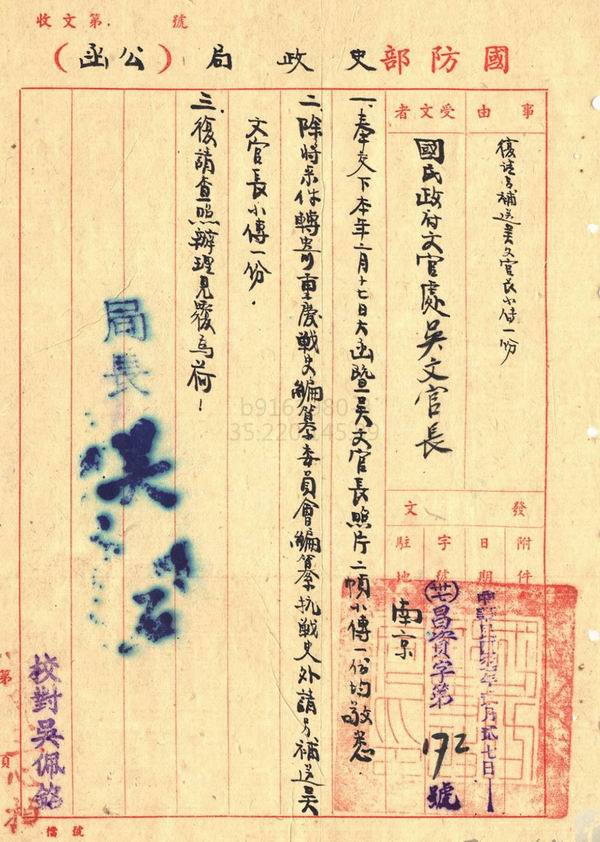 收文第　號
國防部史政局(公函)
事由
復請另補送吳文官長小傳一份
受文者
國民政府文官處吳文官長
發文
附件
日期
中華民國卅七年二月貳七日
字號
(卅七)昌資字第172號
駐地
南京
一、奉交下本年二月十七日大函暨吳文官長照片二幀小傳一份均敬悉
二、除將來件轉寄重慶戰史編纂委員會編纂抗戰史外請另補送吳
文官長小傳一份．
三、復請查照辦理見覆為荷！
局長吳石
校對吳佩銘
第　頁
檔號